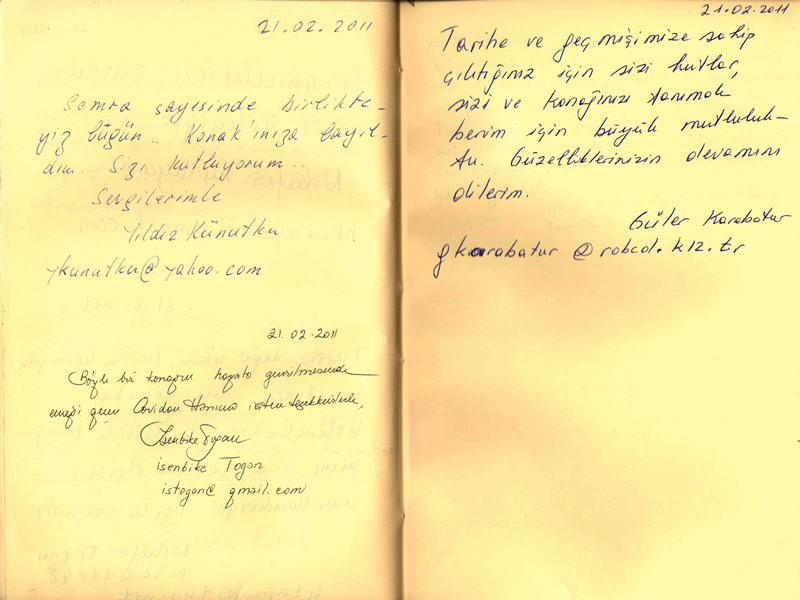 21.02.2011
Semra sayesinde birlikte-
yiz bugün.. Konak'ınıza bayıl-
dım. Sizi kutluyorum..
Sevgilerimle
Yıldız Künutku
ykunutku@yahoo.com
21.02.2011
Böyle bir konağın hayata çevrilmesinde
emeği geçen Cavidan Hanıma içten teşekkürlerle,
isenbike Togan
istogan@gmail.com
21.02.2011
Tarihe ve geçmişimize sahip
çıktığınız için sizi kutlar,
sizi ve Konağınızı tanımak
benim için büyük mutluluk-
tu. Güzelliklerinizin devamını
dilerim.
Güler Karabatur
gkarabatur@robcol.k12.tr